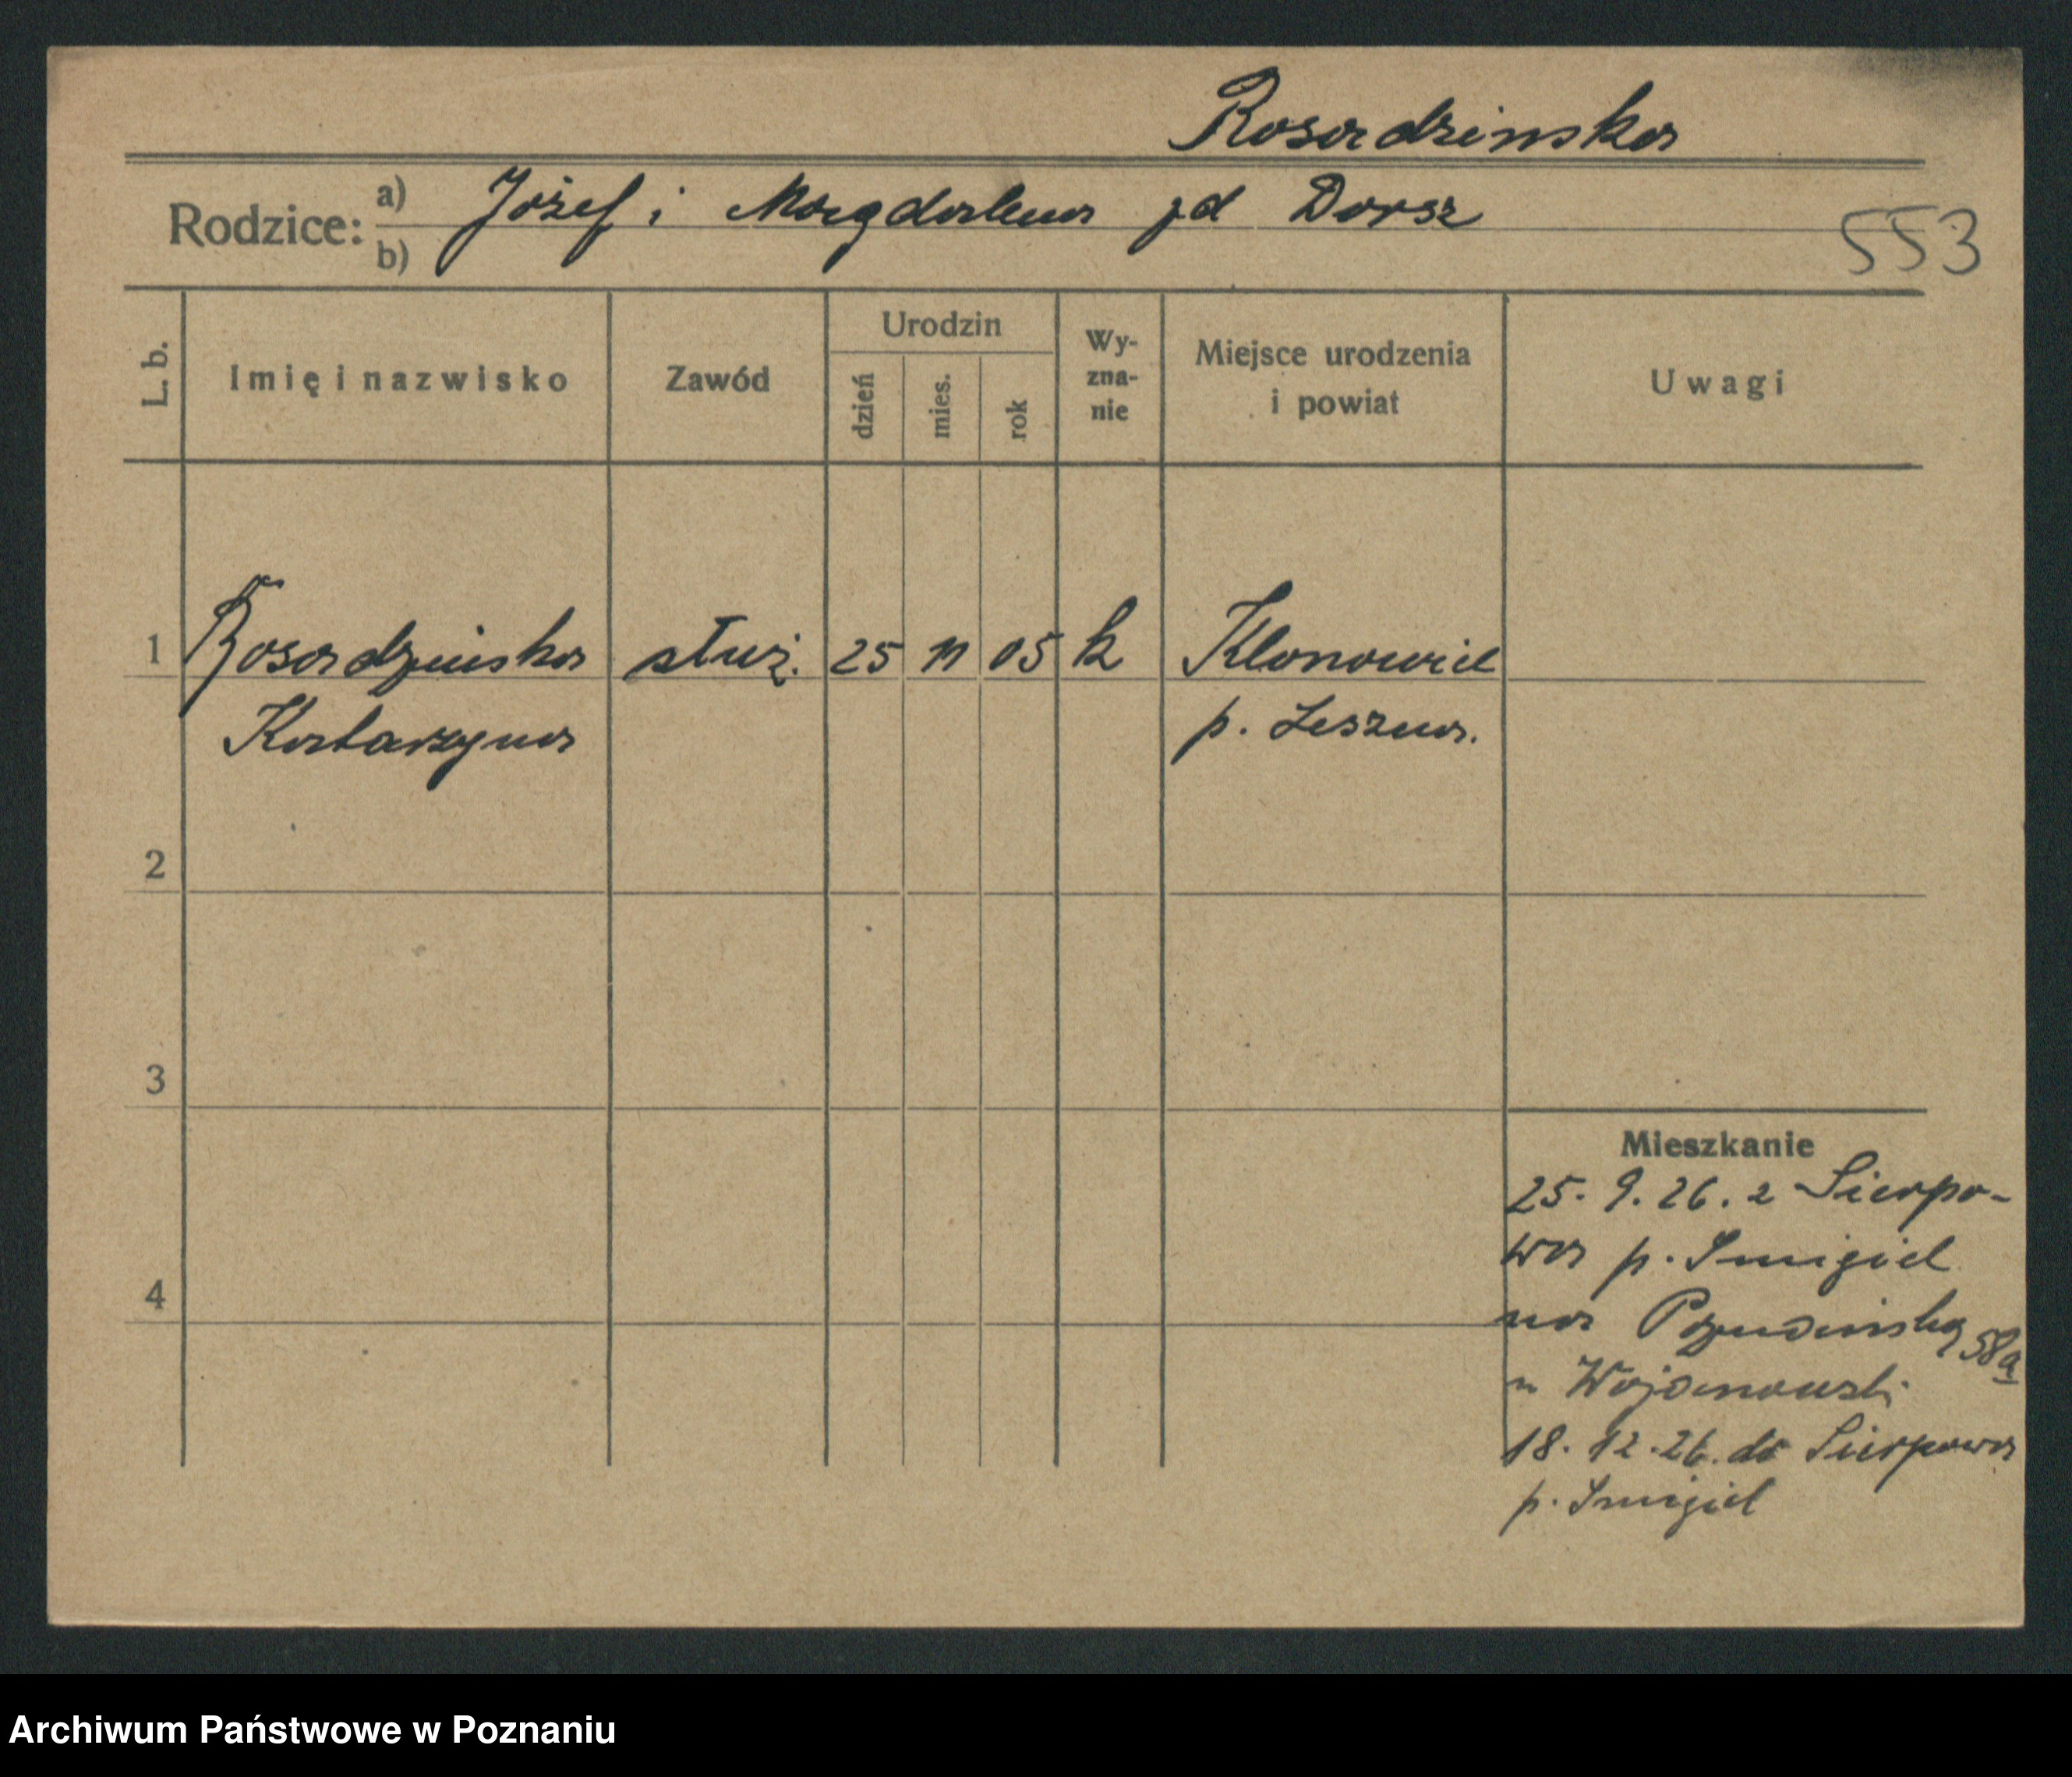 Rosadzinska
Rodzice: a) Józef i Magdalena zd Dorsz
b)
553
L. b.
Imię i nazwisko
Zawód
Urodzin
dzień
mies.
rok
Wy-
zna-
nie
Miejsce urodzenia
i powiat
Uwagi
1 Rosadzinska służ. 25 11 05 k Klonowiec
Katarzyna p. Leszna.
2
3
4
Mieszkanie
25. 9. 26. z Sierpo-
wa p. Smigiel
na 58a
u
18. 12. 26. do Sierpowa
p. Smigiel
Archiwum Państwowe w Poznaniu